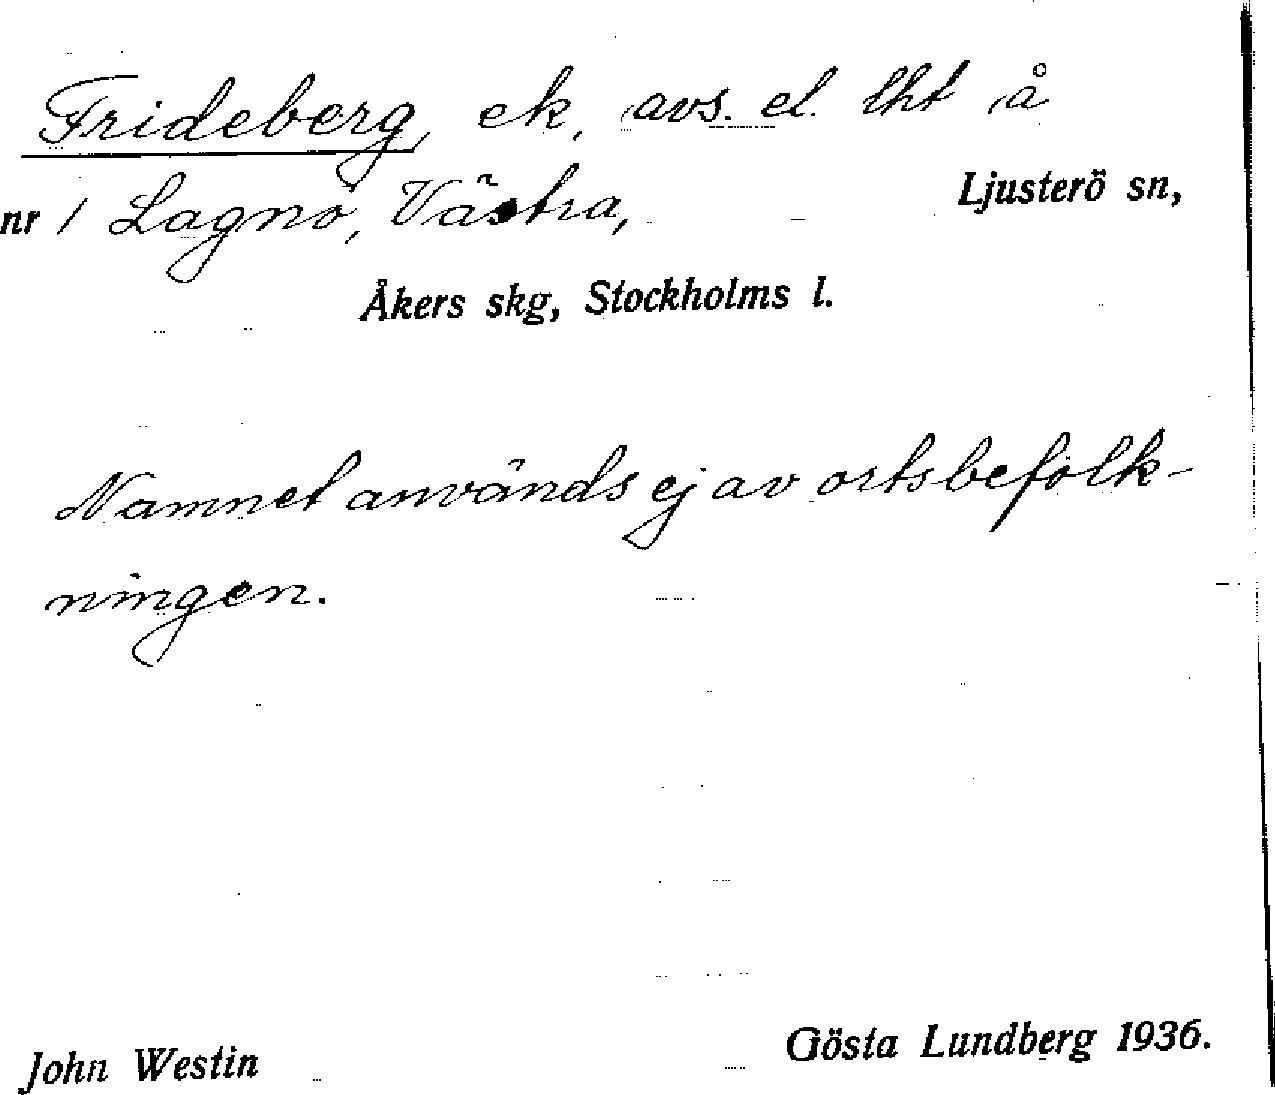 Frideberg, ek, avs. el. lht å
nr 1 Lagnö, Västra, Ljusterö sn,
Åkers skg, Stockholms l.
Namnet används ej av ortsbefolk-
ningen.
John Westin Gösta Lundberg 1936.